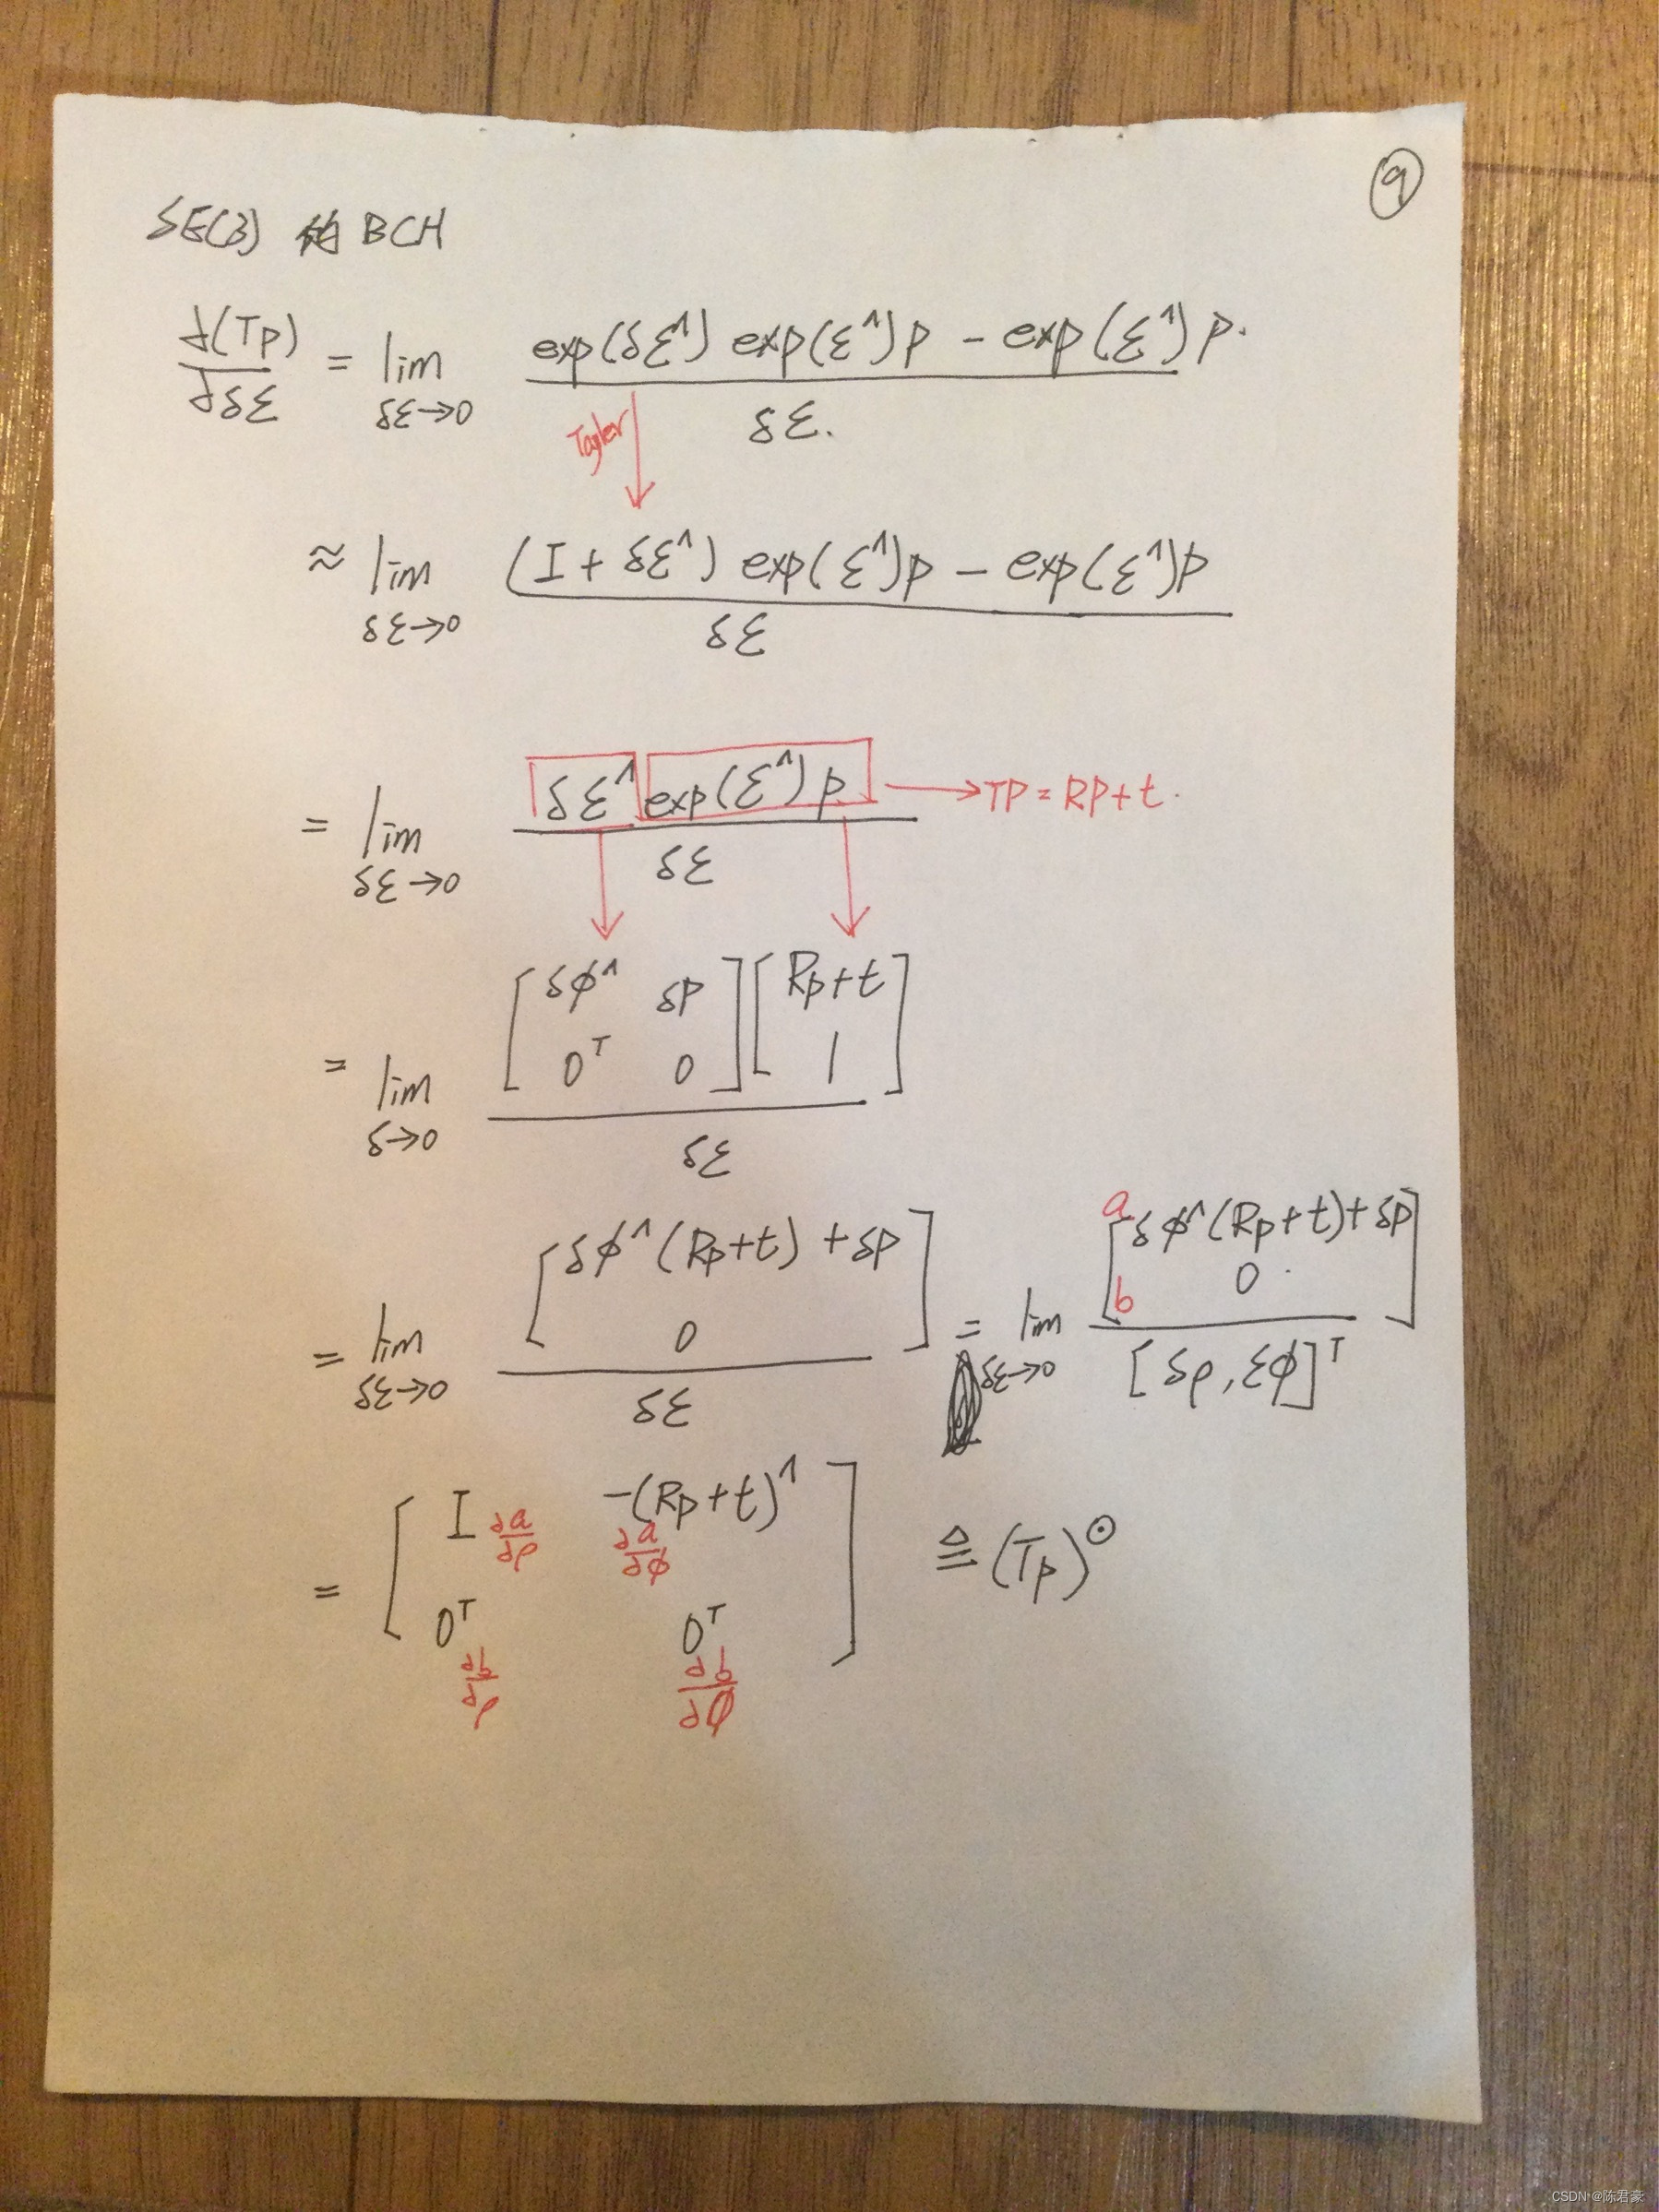 ⑨
SE(3) 的 BCH
∂(Tp)/∂δξ = lim_{δξ→0} (exp(δξ^) exp(ξ^)p − exp(ξ^)p.) / δξ.
Tayler
≈ lim_{δξ→0} ((I + δξ^) exp(ξ^)p − exp(ξ^)p) / δξ
= lim_{δξ→0} (δξ^ exp(ξ^)p) / δξ → TP = RP+t.
= lim_{δ→0} ([δφ^ δρ; 0^T 0] [Rp+t; 1]) / δξ
= lim_{δξ→0} [δφ^(Rp+t) + δρ; 0] / δξ = lim_{δξ→0} [a δφ^(Rp+t)+δρ; b 0.] / [δρ, ξφ]^T
= [I ∂a/∂ρ −(Rp+t)^ ∂a/∂φ; 0^T ∂b/∂ρ 0^T ∂b/∂φ] ≜ (Tp)^⊙
CSDN @陈君豪